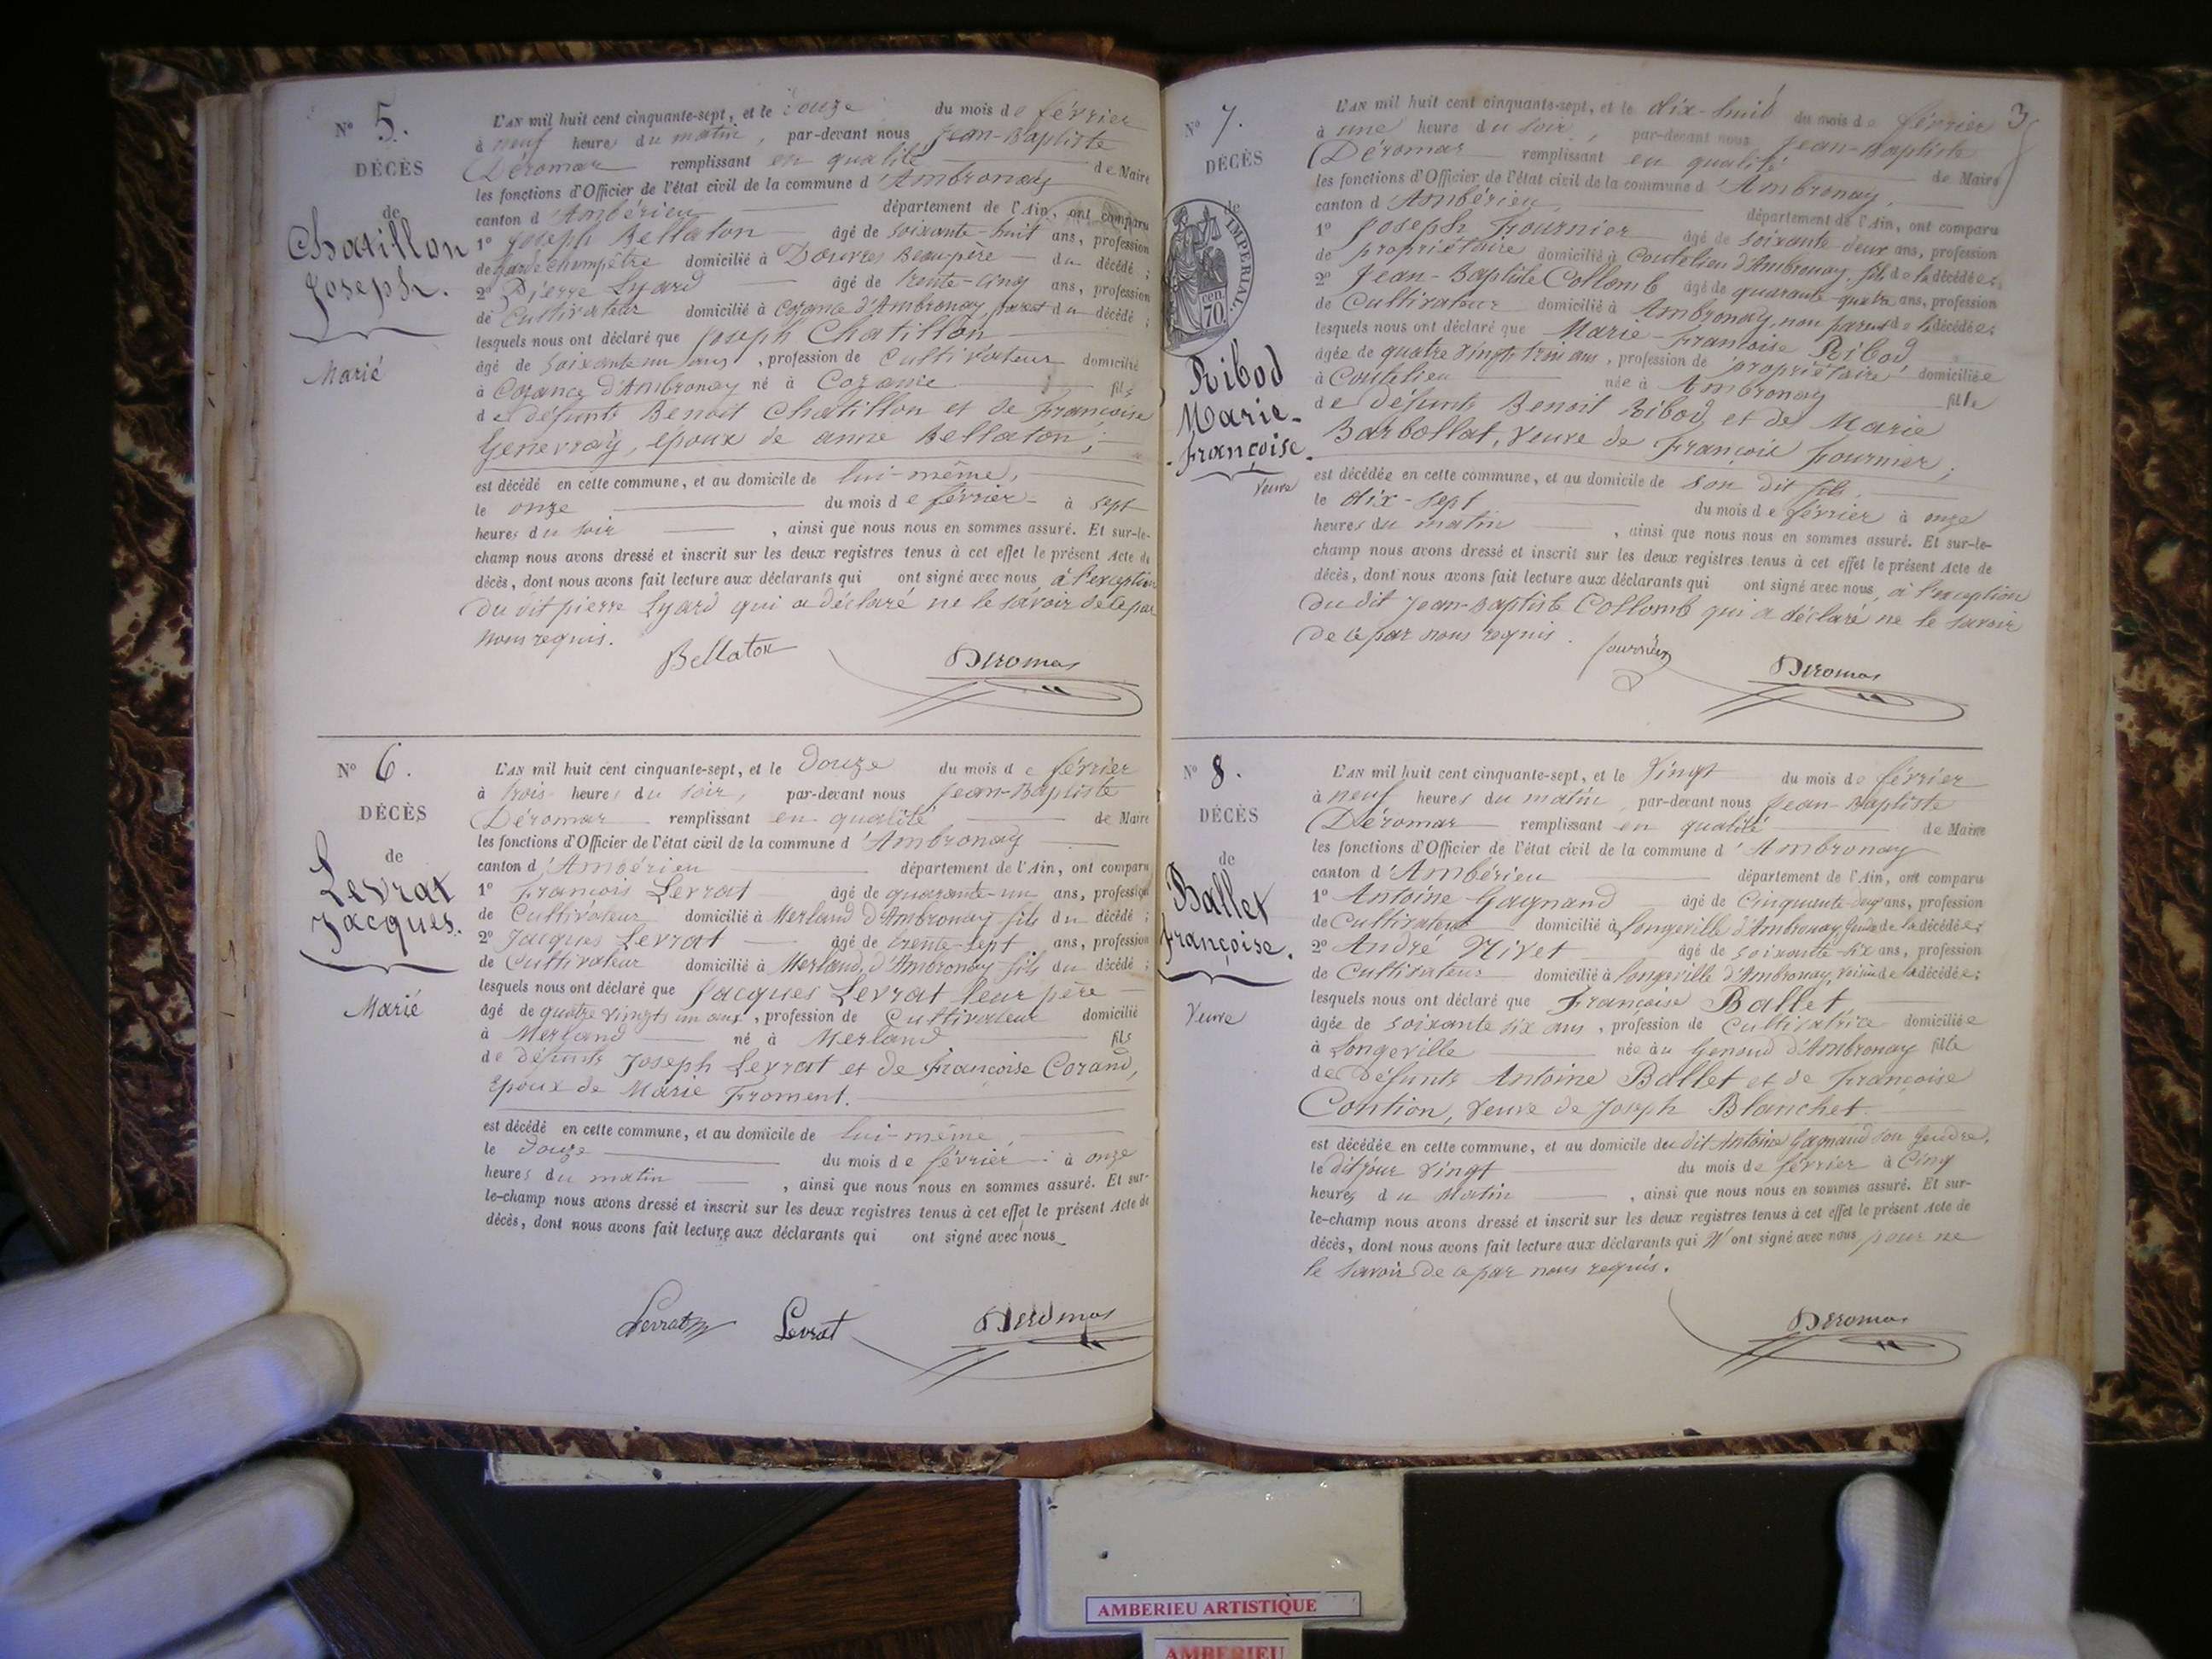 N° 5.
DÉCÈS
de
Chatillon
Joseph.
Marié
L'AN mil huit cent cinquante-sept, et le douze du mois de février
à neuf heure du matin, par-devant nous Jean-Baptiste
Déromas remplissant en qualité de Maire
les fonctions d'Officier de l'état civil de la commune d'Ambronay
canton d'Ambérieu département de l'Ain, ont comparu
1° Joseph Bellaton âgé de soixante-huit ans, profession
de garde champêtre domicilié à Douvres Beau-père du décédé;
2° Pierre Lyard âgé de trente-cinq ans, profession
de Cultivateur domicilié à Cozance d'Ambronay, parent du décédé;
lesquels nous ont déclaré que Joseph Chatillon
âgé de soixante un ans, profession de Cultivateur domicilié
à Cozance d'Ambronay né à Cozance fils
de défunts Benoit Chatillon et de Françoise
Genevray, époux de anne Bellaton;
est décédé en cette commune, et au domicile de lui-même,
le onze du mois de février à sept
heures du soir, ainsi que nous nous en sommes assuré. Et sur-le-
champ nous avons dressé et inscrit sur les deux registres tenus à cet effet le présent Acte de
décès, dont nous avons fait lecture aux déclarants qui ont signé avec nous, à l'exception
du dit pierre Lyard qui a déclaré ne le savoir de ce par
nous requis.
Bellaton Déromas
N° 6.
DÉCÈS
de
Levrat
Jacques.
Marié
L'AN mil huit cent cinquante-sept, et le douze du mois de février
à trois heures du soir, par-devant nous Jean-Baptiste
Déromas remplissant en qualité de Maire
les fonctions d'Officier de l'état civil de la commune d'Ambronay
canton d'Ambérieu département de l'Ain, ont comparu
1° François Levrat âgé de quarante-un ans, profession
de Cultivateur domicilié à Merland d'Ambronay fils du décédé;
2° Jacques Levrat âgé de trente-sept ans, profession
de Cultivateur domicilié à Merland, d'Ambronay fils du décédé;
lesquels nous ont déclaré que Jacques Levrat leur père
âgé de quatre vingts un ans, profession de Cultivateur domicilié
à Merland né à Merland fils
de défunts Joseph Levrat et de françoise Corand,
époux de Marie Froment.
est décédé en cette commune, et au domicile de lui-même,
le douze du mois de février à onze
heures du matin, ainsi que nous nous en sommes assuré. Et sur-
le-champ nous avons dressé et inscrit sur les deux registres tenus à cet effet le présent Acte de
décès, dont nous avons fait lecture aux déclarants qui ont signé avec nous
Levrat Levrat Déromas
3
N° 7.
DÉCÈS
de
IMPERIAL.
70 cen.
Ribod
Marie-
françoise.
Veuve
L'AN mil huit cent cinquante-sept, et le dix-huit du mois de février
à une heure du soir, par-devant nous Jean-Baptiste
Déromas remplissant en qualité de Maire
les fonctions d'Officier de l'état civil de la commune d'Ambronay,
canton d'Ambérieu, département de l'Ain, ont comparu
1° Joseph Fournier âgé de soixante-deux ans, profession
de propriétaire domicilié à Coutelieu d'Ambronay, fils de la décédée;
2° Jean-Baptiste Collomb âgé de quarante-quatre ans, profession
de Cultivateur domicilié à Ambronay, non parent de la décédée;
lesquels nous ont déclaré que Marie-françoise Ribod
âgée de quatre vingts trois ans, profession de propriétaire domiciliée
à Coutelieu née à Ambronay fille
de défunts Benoit Ribod et de Marie
Barbollat, Veuve de François fournier;
est décédée en cette commune, et au domicile de son dit fils,
le dix-sept du mois de février à onze
heures du matin, ainsi que nous nous en sommes assuré. Et sur-le-
champ nous avons dressé et inscrit sur les deux registres tenus à cet effet le présent Acte de
décès, dont nous avons fait lecture aux déclarants qui ont signé avec nous, à l'exception
du dit Jean-Baptiste Collomb qui a déclaré ne le savoir
de ce par nous requis.
fournier Déromas
N° 8.
DÉCÈS
de
Ballet
françoise.
Veuve
L'AN mil huit cent cinquante-sept, et le vingt du mois de février
à neuf heures du matin par-devant nous Jean-Baptiste
Déromas remplissant en qualité de Maire
les fonctions d'Officier de l'état civil de la commune d'Ambronay
canton d'Ambérieu département de l'Ain, ont comparu
1° Antoine Gagnand âgé de Cinquante-deux ans, profession
de Cultivateur domicilié à Longeville d'Ambronay Gendre de la décédée;
2° André Nivet âgé de soixante-six ans, profession
de Cultivateur domicilié à Longeville d'Ambronay, voisin de la décédée;
lesquels nous ont déclaré que Françoise Ballet
âgée de soixante six ans, profession de Cultivatrice domiciliée
à Longeville née au Genoud d'Ambronay fille
de défunts Antoine Ballet et de Françoise
Contion, Veuve de Joseph Blanchet
est décédée en cette commune, et au domicile du dit Antoine Gagnand son Gendre,
le dit jour vingt du mois de février à Cinq
heures du Matin, ainsi que nous nous en sommes assuré. Et sur-
le-champ nous avons dressé et inscrit sur les deux registres tenus à cet effet le présent Acte de
décès, dont nous avons fait lecture aux déclarants qui N'ont signé avec nous pour ne
le savoir de ce par nous requis.
Déromas
AMBERIEU ARTISTIQUE
AMBERIEU